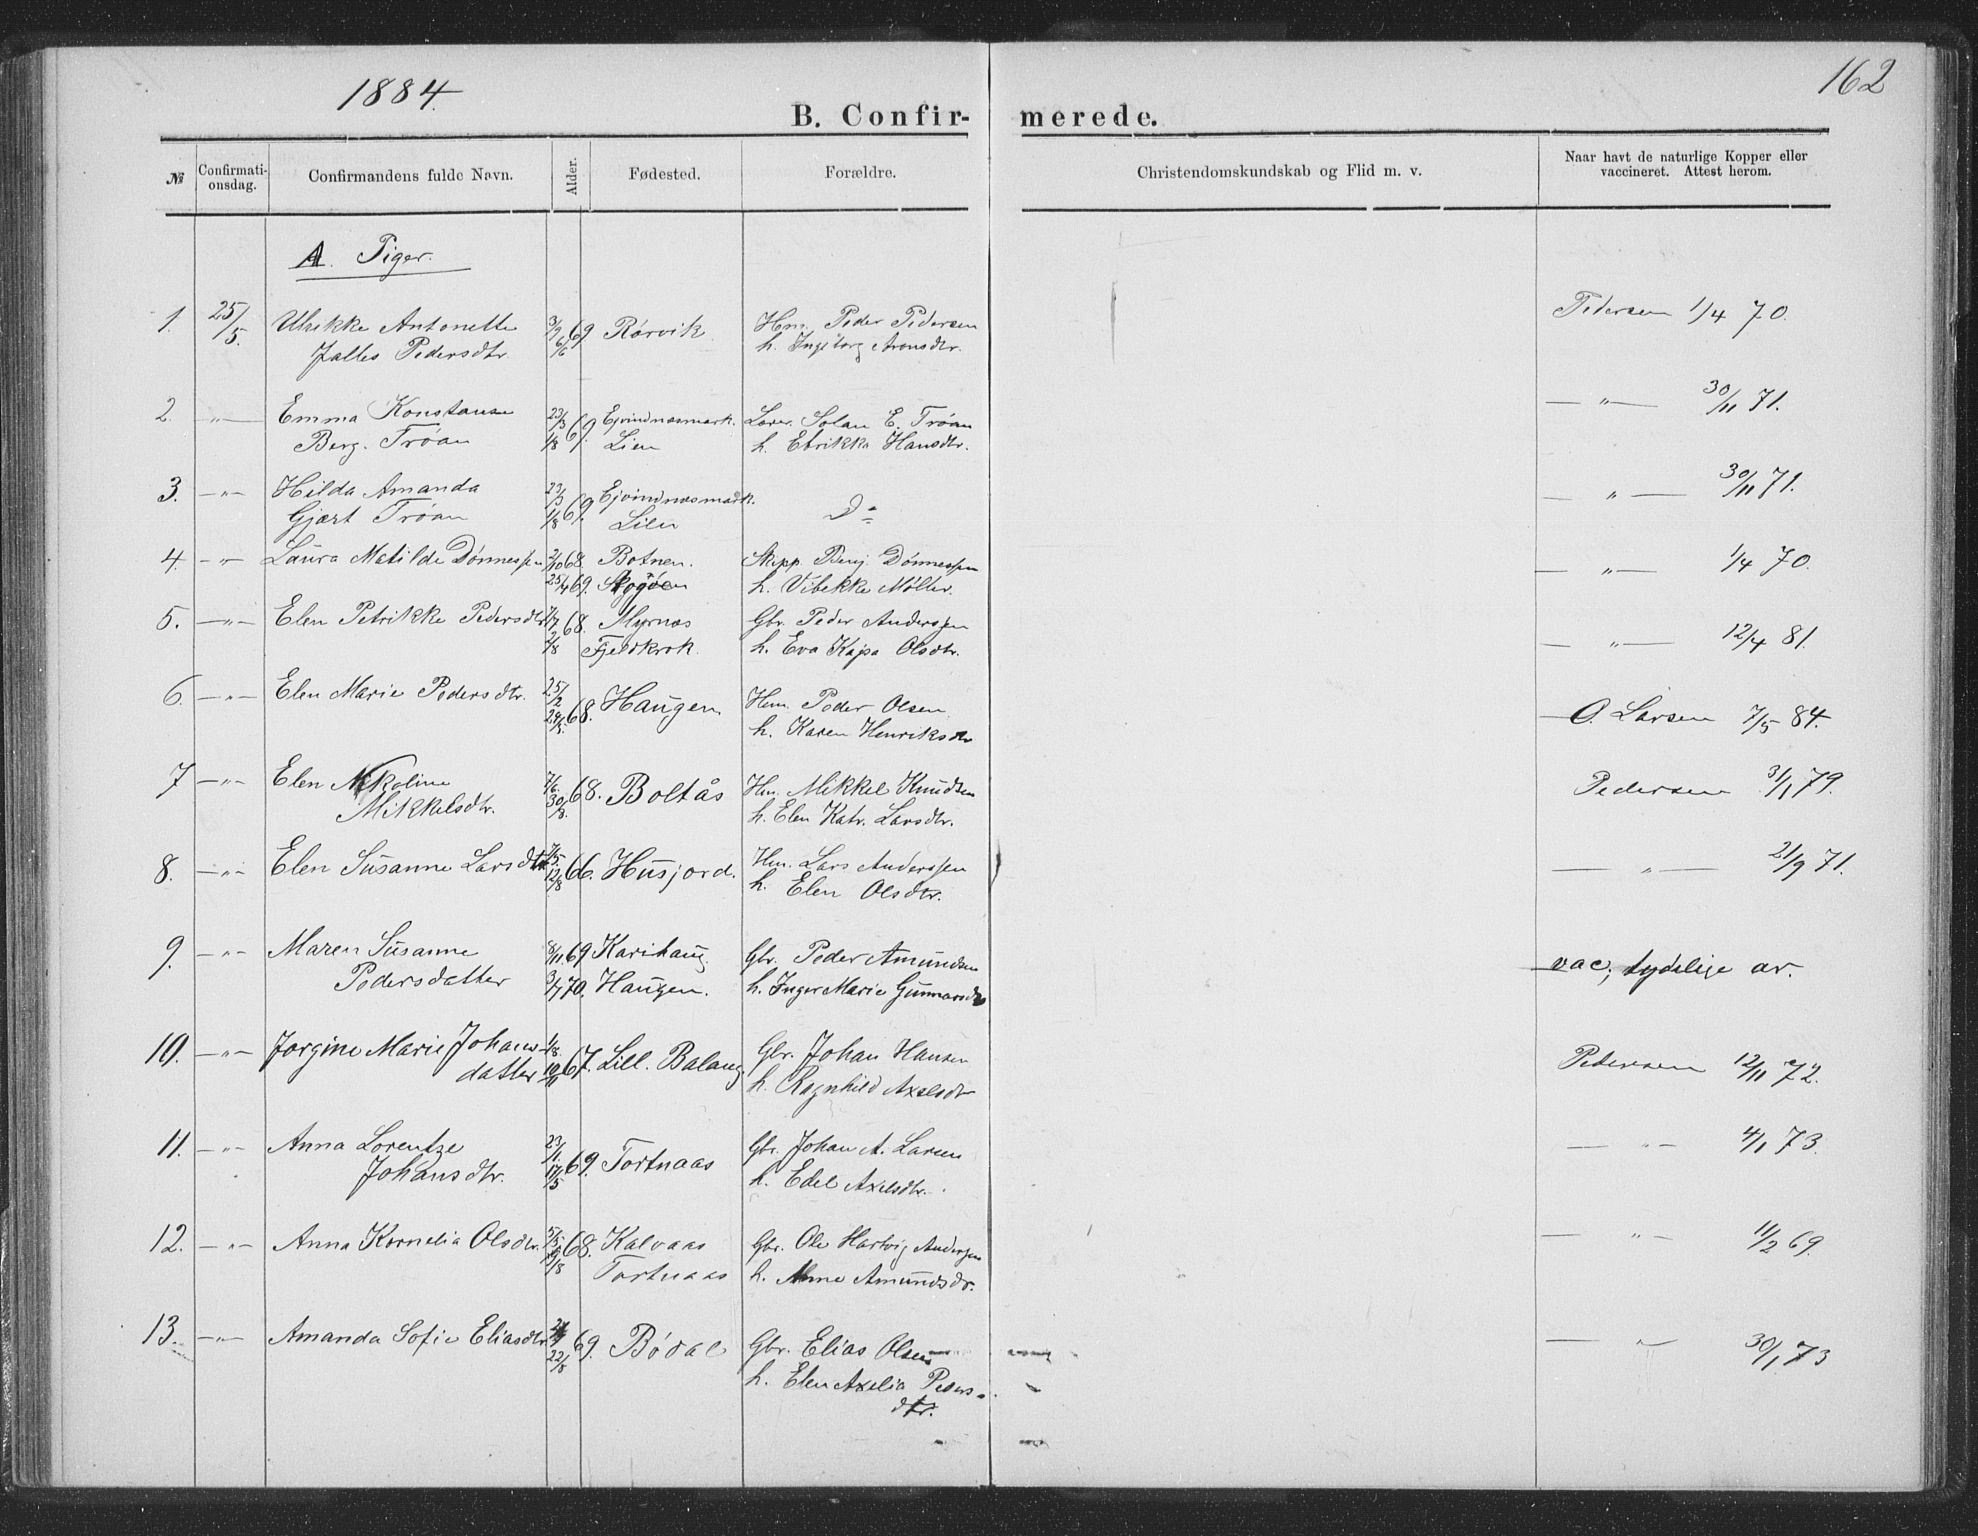 1884.
162
B. Confir- merede.
№ Confirmati- onsdag. Confirmandens fulde Navn. Alder. Fødested. Forældre. Christendomskundskab og Flid m. v. Naar havt de naturlige Kopper eller vaccineret. Attest herom.
A. Piger.
1. 25/5. Ulrikke Antonette 3/9 69 Rørvik Hm. Peder Pedersen Pedersen 1/4 70.
Jalles Pedersdtr. 6/6 h. Ingeborg Aronsdtr.
2. —"— Emma Konstanse 23/3 69. Ejvindnæsmark. E. Trøan —"— 30/11 71.
Berg. Trøan 1/8 Lien h. Hansdtr.
3. —"— Hilda Amanda 23/3 69. Ejvindnæsmark. Do —"— 30/11 71.
Gjært Trøan 1/8 Lien
4. —"— Laura Matilde Dønnessen 2/10 68 Botnen. Skipp. Benj. Dønnessen —"— 1/4 70.
25/4 69. h. Vibekke Møller.
5. —"— Elen Petrikke Pedersdtr 68. Myrnæs Gbr. Peder Anderssen —"— 12/4 81.
2/8 Fjeldkrok. h. Eva Kajsa Olsdtr.
6 —"— Elen Marie Pedersdtr. 25/2 68. Haugen Hm. Peder Olsen O. Larsen 7/5 84.
h. Karen Henriksdtr
7 —"— Elen Nikoline 7/6. 68. Boltås Hm. Mikkel Knudsen Pedersen 31/1 79.
Mikkelsdtr. 30/8. h. Elen Katr. Larsdtr.
8. —"— Elen Susanne Larsdtr 7/5. 66. Husjord. Hm. Lars Anderssen —"— 21/9 71.
12/8 h. Elen Olsdtr.
9. —"— Maren Susanne 8/11 69 Karihaug. Gbr. Peder Amundsen vac, tydelige ar.
Pedersdatter 3/7 70. Haugen. h. Inger Marie Gunnarsdtr
10. —"— Jorgine Marie Johans- 1/8. 67. Lill. Balang Gbr. Johan Hansen Pedersen 12/11 72.
datter 10/11 h. Ragnhild Axelsdtr
11. —"— Anna Lorentze 23/1. 69. Tortnaas Gbr. Johan A. Larsen —"— 4/1 73.
Johansdtr. 17/5 h. Edel Axelsdtr.
12. —"— Anna Kornelia Olsdtr. 5/5 68. Kalvaas Gbr. Ole Hartvig Andersen —"— 11/2 69.
Tortnaas h. Anne Amundsdr.
13. —"— Amanda Sofie Eliasdtr 69. Bødal Gbr. Elias Olsen —"— 30/1 73
22/8 h. Elen Axelia Peders-
dtr.